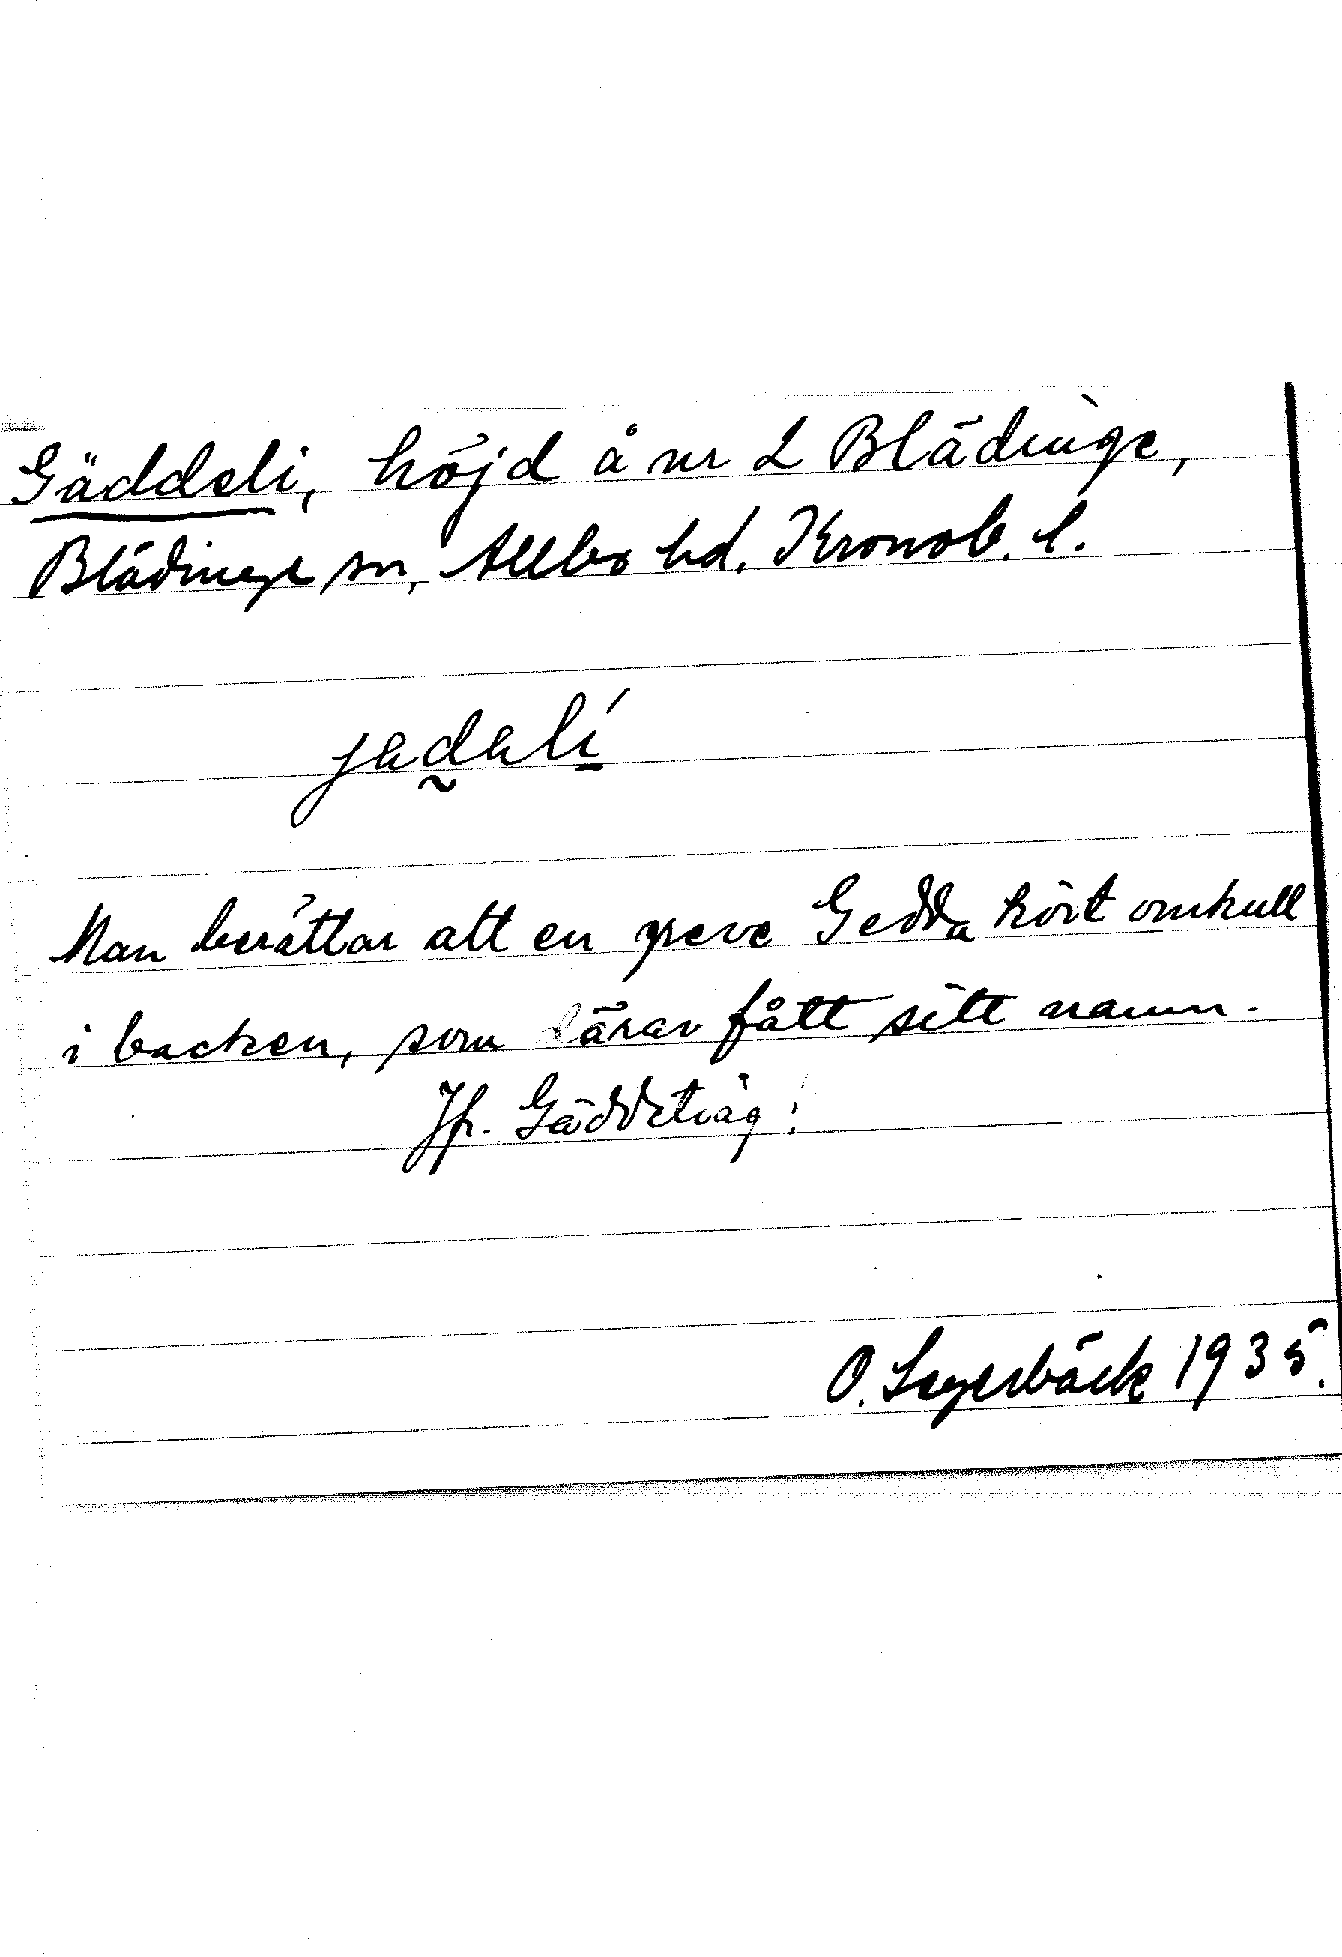 Gäddeli, höjd å nr 2 Blädinge,
Blädinge sn, Allbo hd. Kronob. l.
jadalí
Man berättar att en greve Gedda kört omkull
i backen, som därav fått sitt namn.
Jfr. Gäddetväg!
O. Segerbäck 1935.